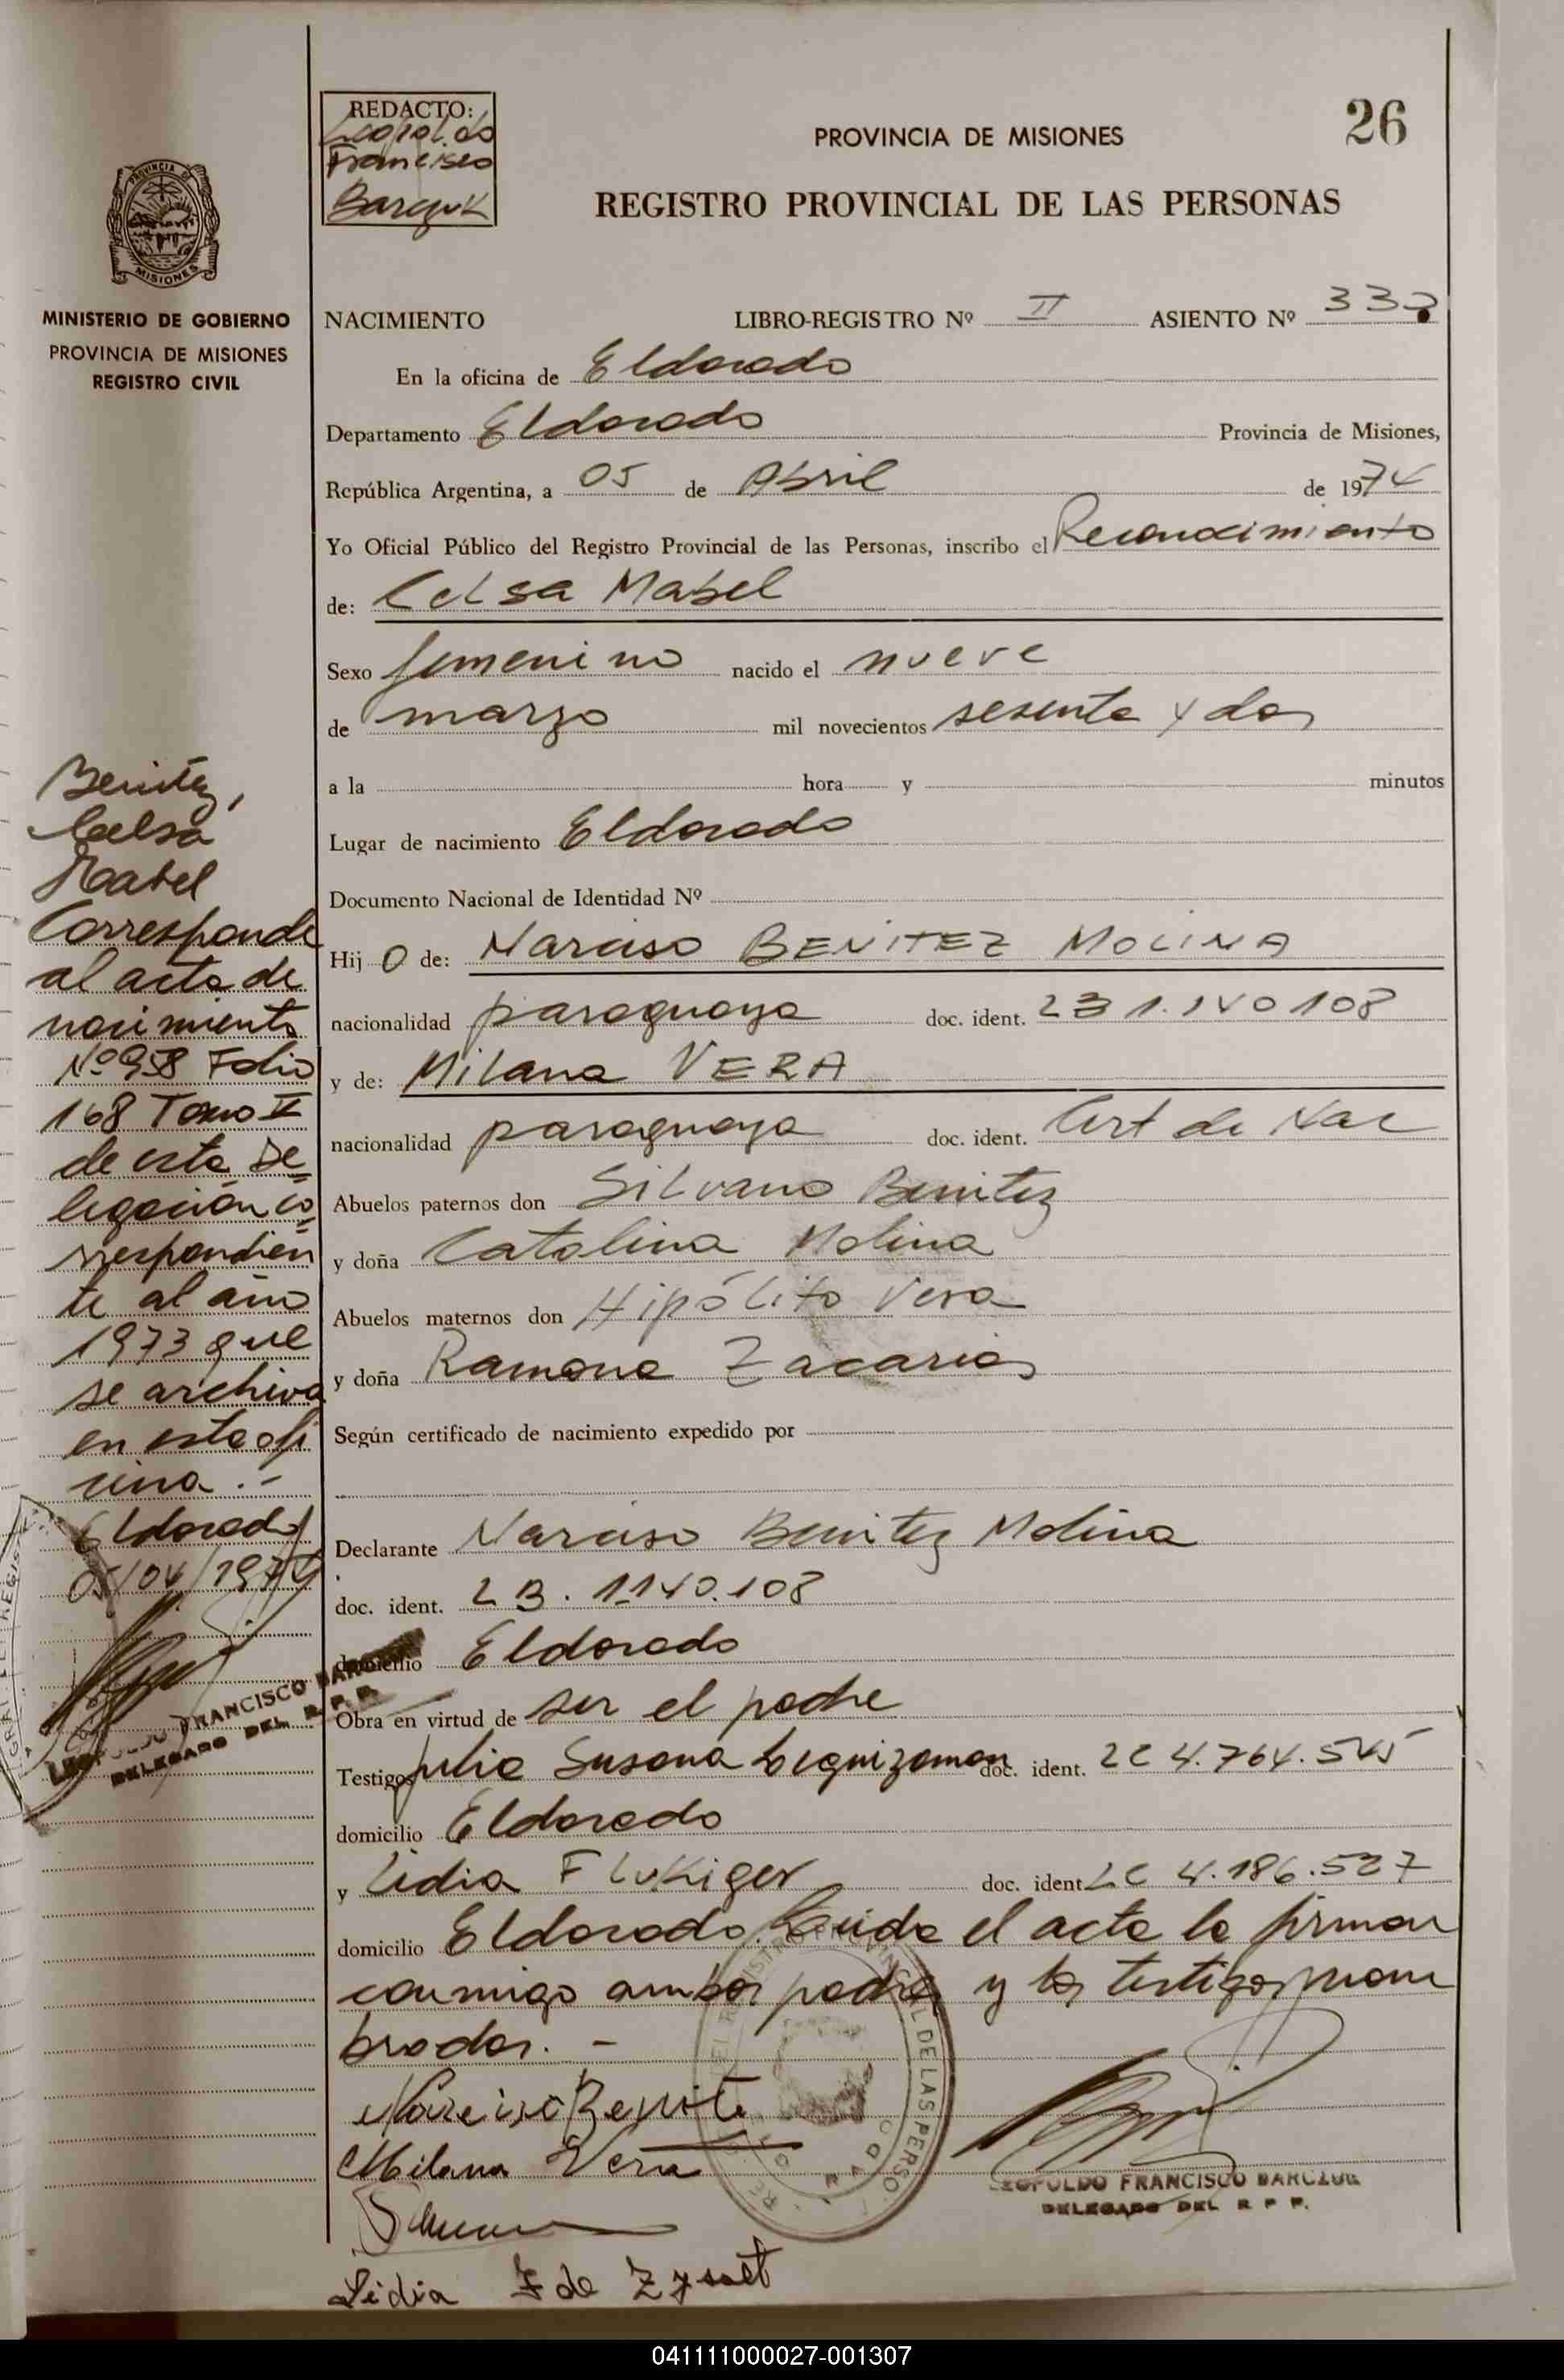 REDACTO:
Leopoldo
Francisco
Barczuk
26
PROVINCIA DE MISIONES
REGISTRO PROVINCIAL DE LAS PERSONAS
PROVINCIA DE
MISIONES
MINISTERIO DE GOBIERNO
PROVINCIA DE MISIONES
REGISTRO CIVIL
NACIMIENTO LIBRO-REGISTRO Nº II ASIENTO Nº
En la oficina de Eldorado
Departamento Eldorado Provincia de Misiones,
República Argentina, a 05 de Abril de 1974
Yo Oficial Público del Registro Provincial de las Personas, inscribo el Reconocimiento
de: Celsa Mabel
Sexo femenino nacido el nueve
de marzo mil novecientos sesenta y dos
a la hora y minutos
Lugar de nacimiento Eldorado
Documento Nacional de Identidad Nº
Hij O de: Narciso BENITEZ MOLINA
nacionalidad paraguaya doc. ident.
y de: Milana VERA
nacionalidad paraguaya doc. ident. Cert de Nac
Abuelos paternos don Silvano Benitez
y doña Catalina Molina
Abuelos maternos don Hipólito Vera
y doña Ramona Zacarias
Según certificado de nacimiento expedido por
Declarante Narciso Benitez Molina
doc. ident.
domicilio Eldorado
Obra en virtud de ser el padre
Testigos Julia Susana Leguizamon doc. ident. LC 4.764.545
domicilio Eldorado
y Lidia Flukiger doc. ident. LC 4.186.527
domicilio Eldorado. Leida el acta la firman
conmigo ambos padres y los testigos nom
brados. -
Narciso Benite
Milana Vera
Lidia F de Zysset
LEOPOLDO FRANCISCO BARCZUK
DELEGADO DEL R P P.
Benitez,
Celsa
Mabel
Corresponde
al acta de
nacimiento
Nº 958 Folio
168 Tomo II
de esta De
legación co
rrespondien
te al año
1973 que
se archiva
en esta ofi
cina.-
Eldorado
05/04/1974
FRANCISCO
DELEGADO DEL R. P. P.
041111000027-001307